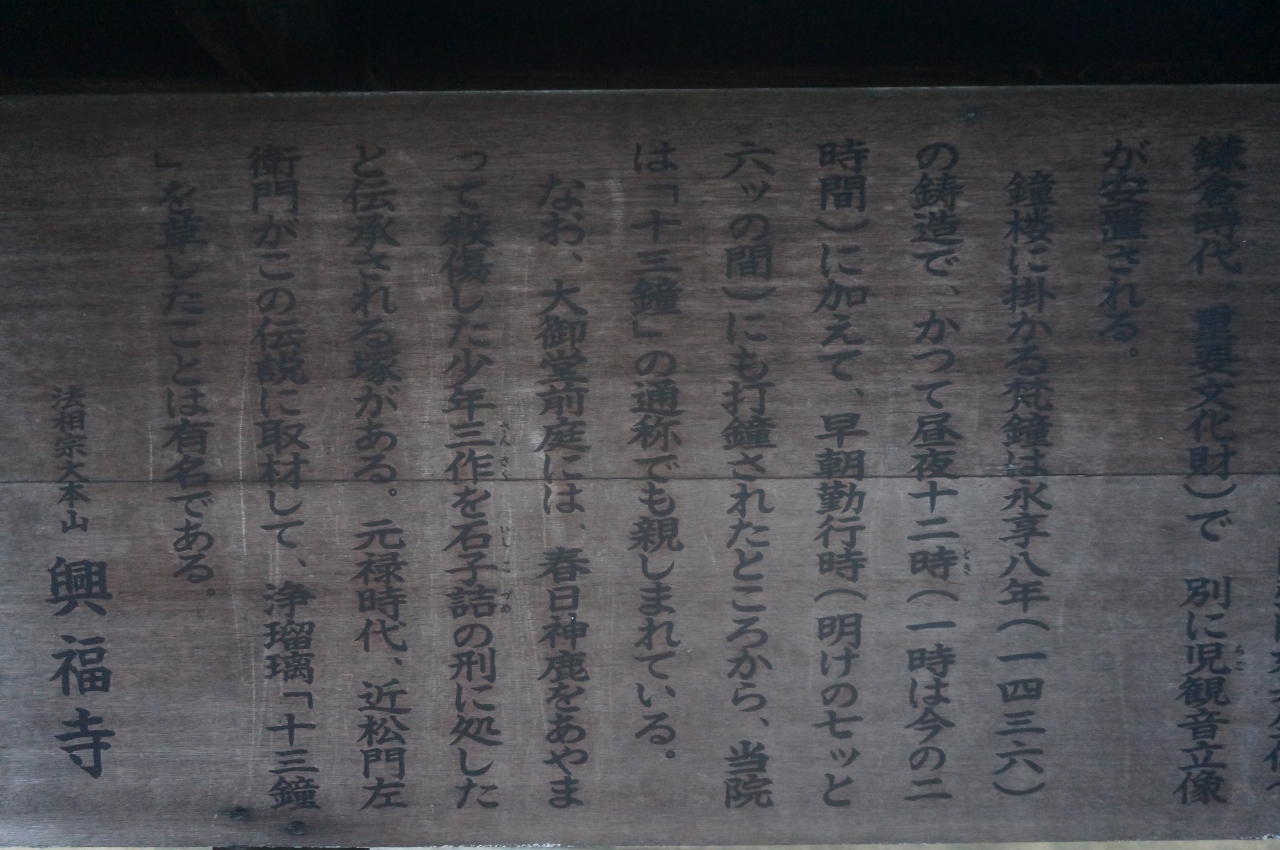 鎌倉時代、重要文化財)で 別に児観音立像
が安置される。
鐘楼に掛かる梵鐘は永享八年(一四三六)
の鋳造で、かつて昼夜十二時(一時は今の二
時間)に加えて、早朝勤行時(明けの七ッと
六ッの間)にも打鐘されたところから、当院
は「十三鐘」の通称でも親しまれている。
なお、大御堂前庭には、春日神鹿をあやま
って殺傷した少年三作を石子詰の刑に処した
と伝承される塚がある。元禄時代、近松門左
衛門がこの伝説に取材して、浄瑠璃「十三鐘
」を草したことは有名である。
法相宗大本山 興福寺